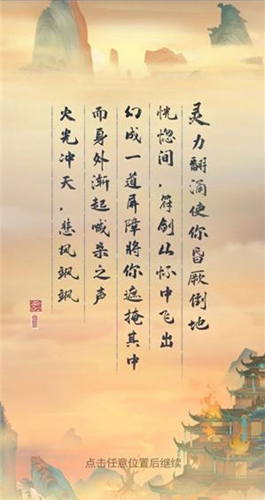 灵力翻涌使你昏厥倒地
恍惚间，符剑从怀中飞出
幻成一道屏障将你遮掩其中
而身外渐起喊杀之声
火光冲天，悲风飒飒
点击任意位置后继续